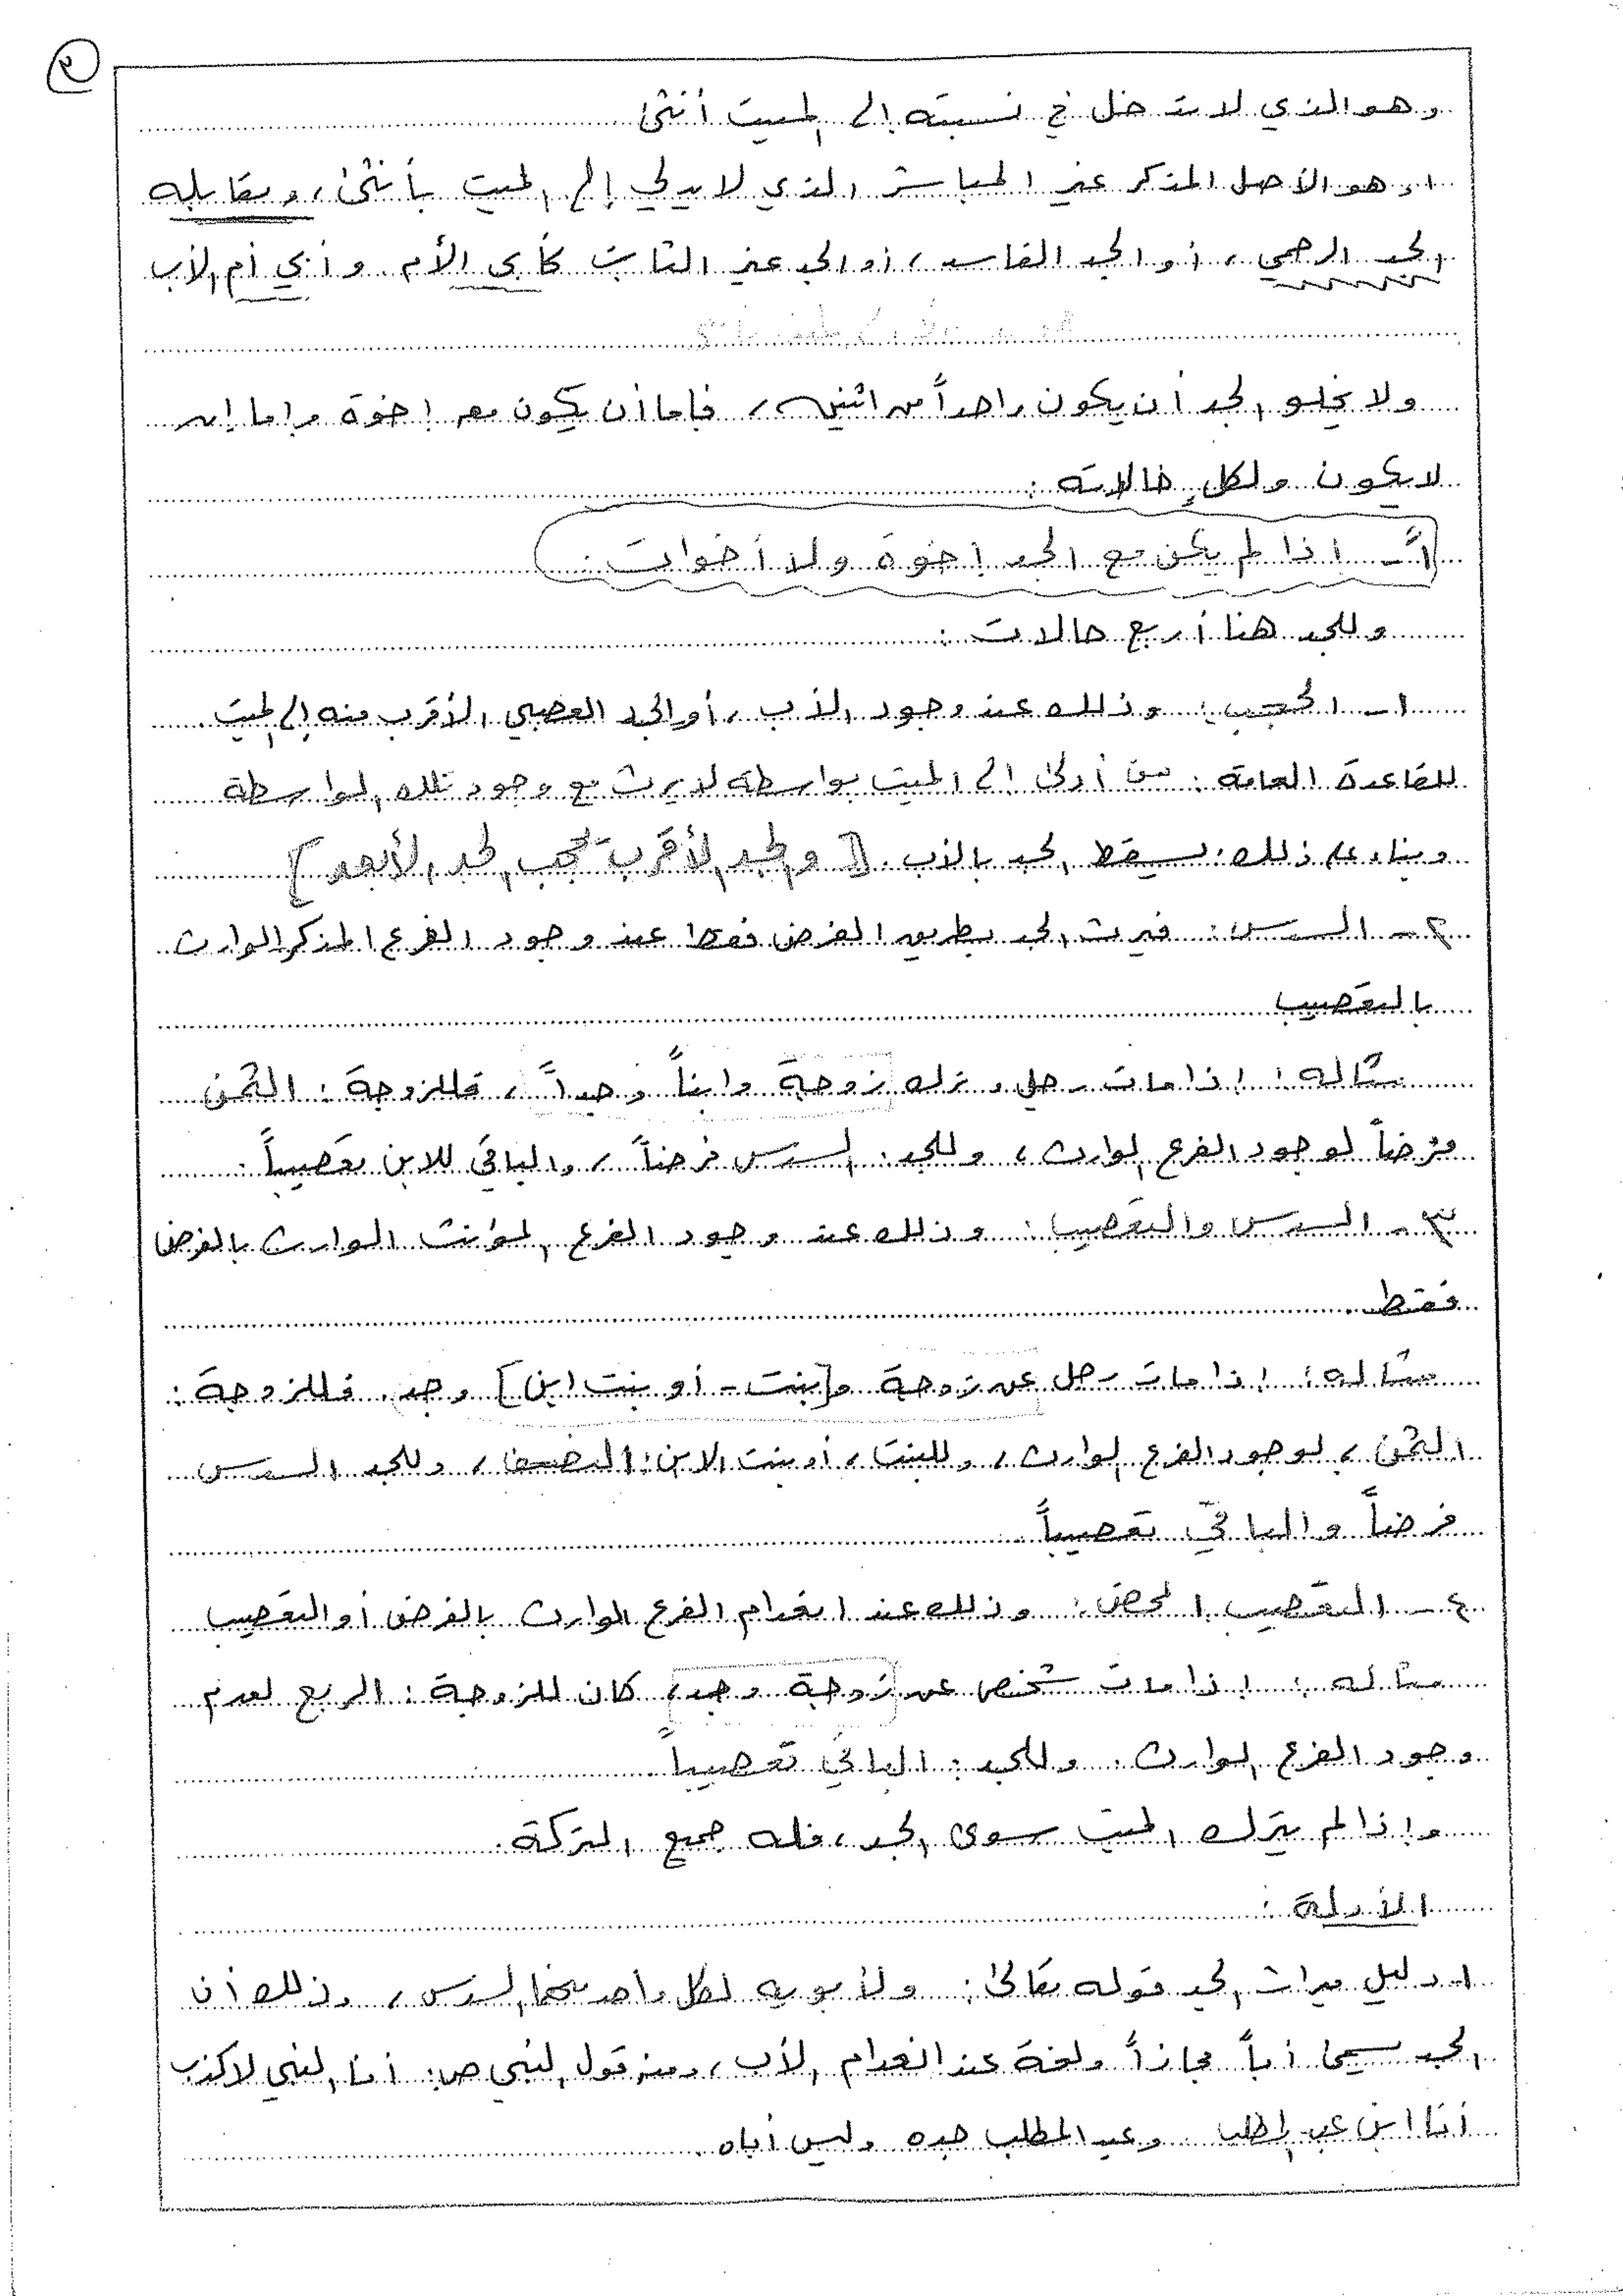 ٢
وهو الذي لا تدخل في نسبته إلى الميت أنثى
أو هو الأصل المذكر غير المباشر الذي لا يدلي إلى الميت بأنثى، ويقابله
الجد الرحمي، أو الجد الفاسد، أو الجد غير الثابت كأبي الأم وأبي أم الأب
ولا يخلو الجد أن يكون واحداً من اثنين، فإما أن يكون معه إخوة وإما إن
لا يكون ولكلٍ حالاته:
أً - إذا لم يكن مع الجد إخوة ولا أخوات:
وللجد هنا أربع حالات:
١- الحجب: وذلك عند وجود الأب، أو الجد العصبي الأقرب منه إلى الميت.
للقاعدة العامة: من أدلى إلى الميت بواسطة لا يرث مع وجود تلك الواسطة
وبناء على ذلك: يسقط الجد بالأب. [والجد الأقرب يحجب الجد الأبعد]
٢- السدس: فيرث الجد بطريق الفرض فقط عند وجود الفرع المذكر الوارث
بالتعصيب
مثاله: إذا مات رجل وترك زوجة وابناً وجداً، فللزوجة: الثمن
فرضاً لوجود الفرع الوارث، وللجد: السدس فرضاً، والباقي للابن تعصيباً.
٣- السدس والتعصيب: وذلك عند وجود الفرع المؤنث الوارث بالفرض
فقط.
مثاله: إذا مات رجل عن زوجة و[بنت - أو بنت ابن] وجد. فللزوجة:
الثمن، لوجود الفرع الوارث، وللبنت، أو بنت الابن: النصف، وللجد السدس
فرضاً والباقي تعصيباً.
٤- التعصيب المحض: وذلك عند انعدام الفرع الوارث بالفرض أو التعصيب
مثاله: إذا مات شخص عن زوجة وجد، كان للزوجة: الربع لعدم
وجود الفرع الوارث. وللجد: الباقي تعصيباً.
وإذا لم يترك الميت سوى الجد، فله جميع التركة.
الأدلة:
١- دليل ميراث الجد قوله تعالى: ولأبويه لكل واحد منهما السدس، وذلك أن
الجد يسمى أباً مجازاً ولغة عند انعدام الأب، ومنه قول النبي ص: أنا النبي لا كذب
أنا ابن عبد المطلب وعبد المطلب جده وليس أباه.